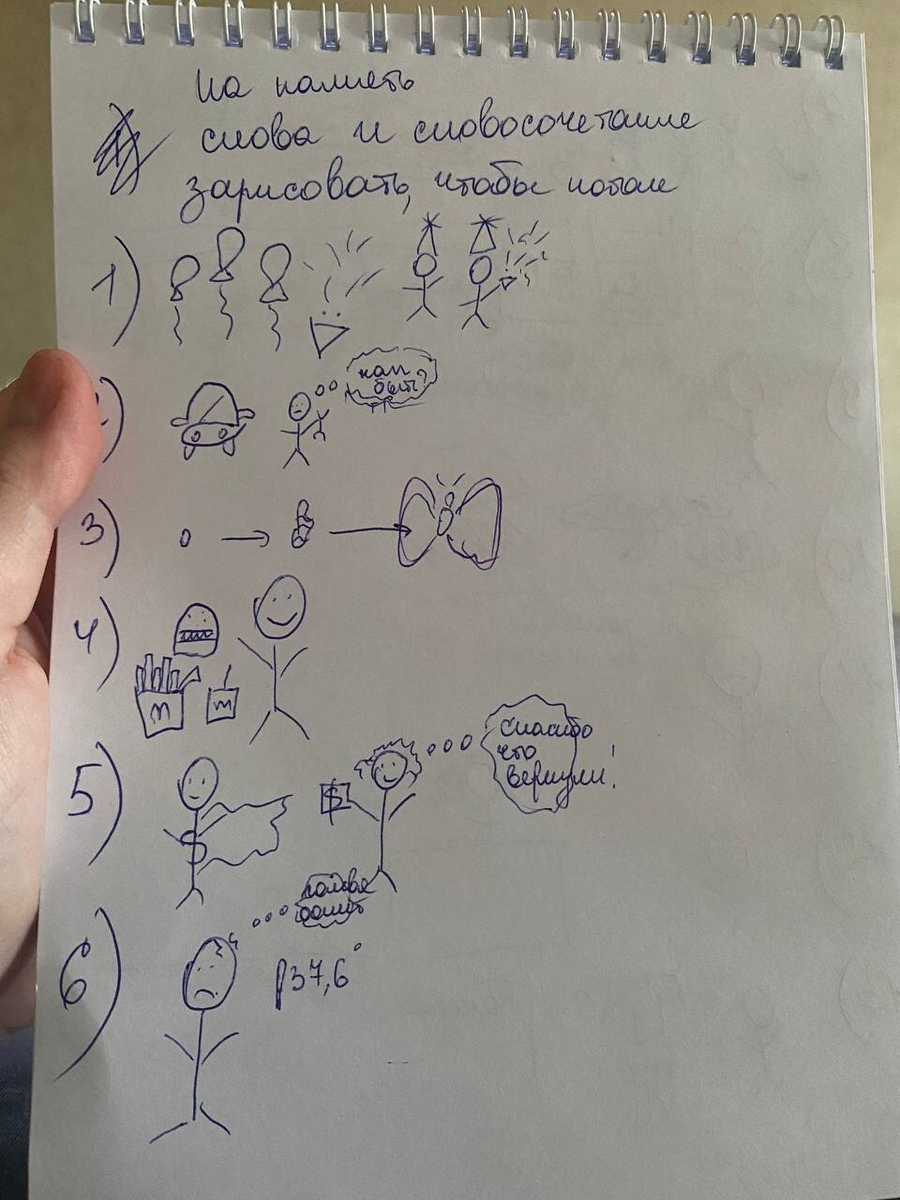 На память
слова и словосочетание
зарисовать, чтобы потом
1)
2)
как
быть?
3)
4)
m
m
5)
$
S
спасибо
что
вернули!
6)
голова
болит
37,6°